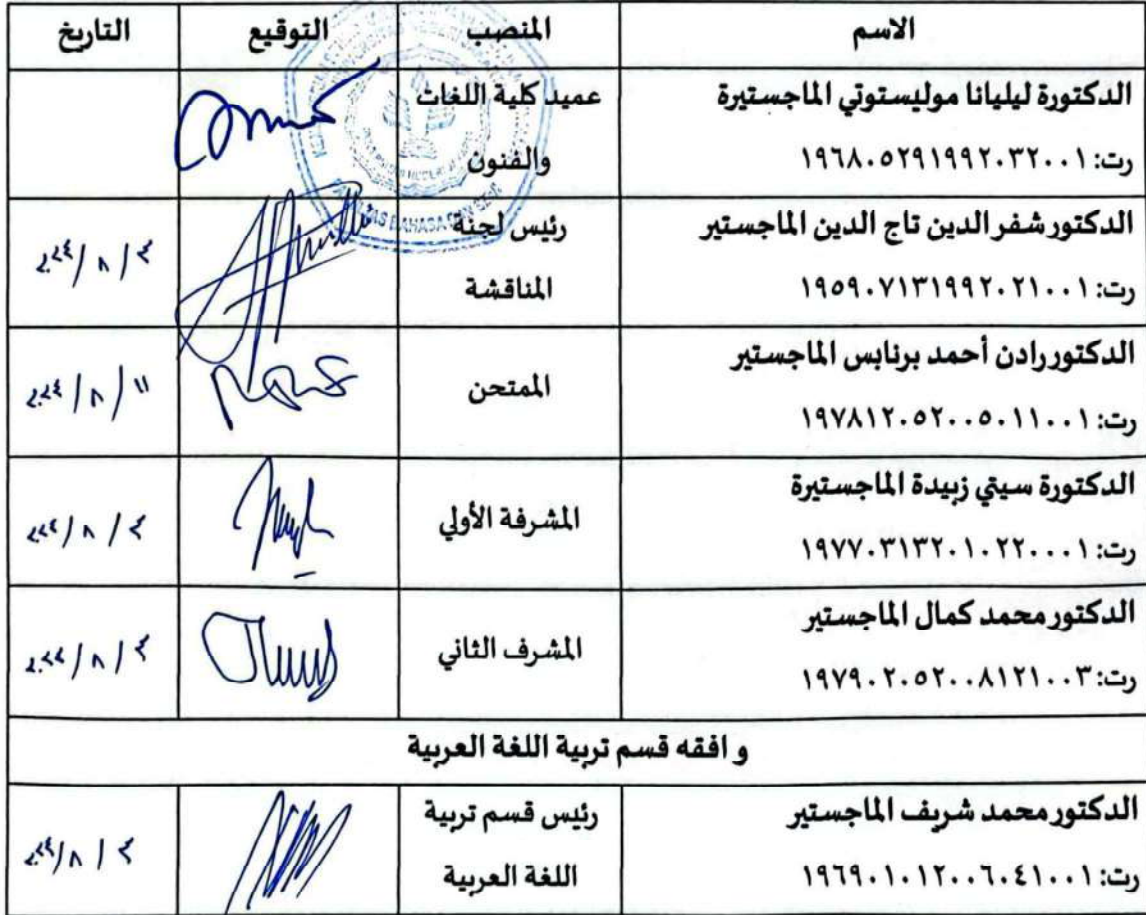 الاسم المنصب التوقيع التاريخ
الدكتورة ليليانا موليستوتي الماجستيرة
رت: ١٩٦٨٠٥٢٩١٩٩٢٠٣٢٠٠١
عميد كلية اللغات
والفنون
الدكتور شفر الدين تاج الدين الماجستير
رت: ١٩٥٩٠٧١٣١٩٩٢٠٢١٠٠١
رئيس لجنة
المناقشة
الدكتور رادن أحمد برنابس الماجستير
رت: ١٩٧٨١٢٠٥٢٠٠٥٠١١٠٠١
الممتحن
١١ / ٨ / ٢٠٢٤
الدكتورة سيتي زبيدة الماجستيرة
رت: ١٩٧٧٠٣١٣٢٠١٠٢٢٠٠٠١
المشرفة الأولي
الدكتور محمد كمال الماجستير
رت: ١٩٧٩٠٢٠٥٢٠٠٨١٢١٠٠٣
المشرف الثاني
و افقه قسم تربية اللغة العربية
الدكتور محمد شريف الماجستير
رت: ١٩٦٩٠١٠١٢٠٠٦٠٤١٠٠١
رئيس قسم تربية
اللغة العربية